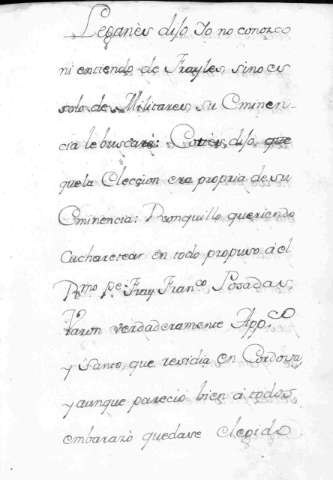 Leganès dijo Yo no conozco
ni entiendo de Frayles sino es
solo de Militares su Eminen-
cia le buscarà: Cortès, dijo, que
que la Eleccion era propria de su
Eminencia: Ronquillo queriendo
Cucharetear en todo propuso à el
R.mo P.e Fray Fran.co Posadas,
Varon verdaderamente App.co
y Santo, que residia en Cordova
y aunque pareciò bien a todos,
embarazò quedase elegido